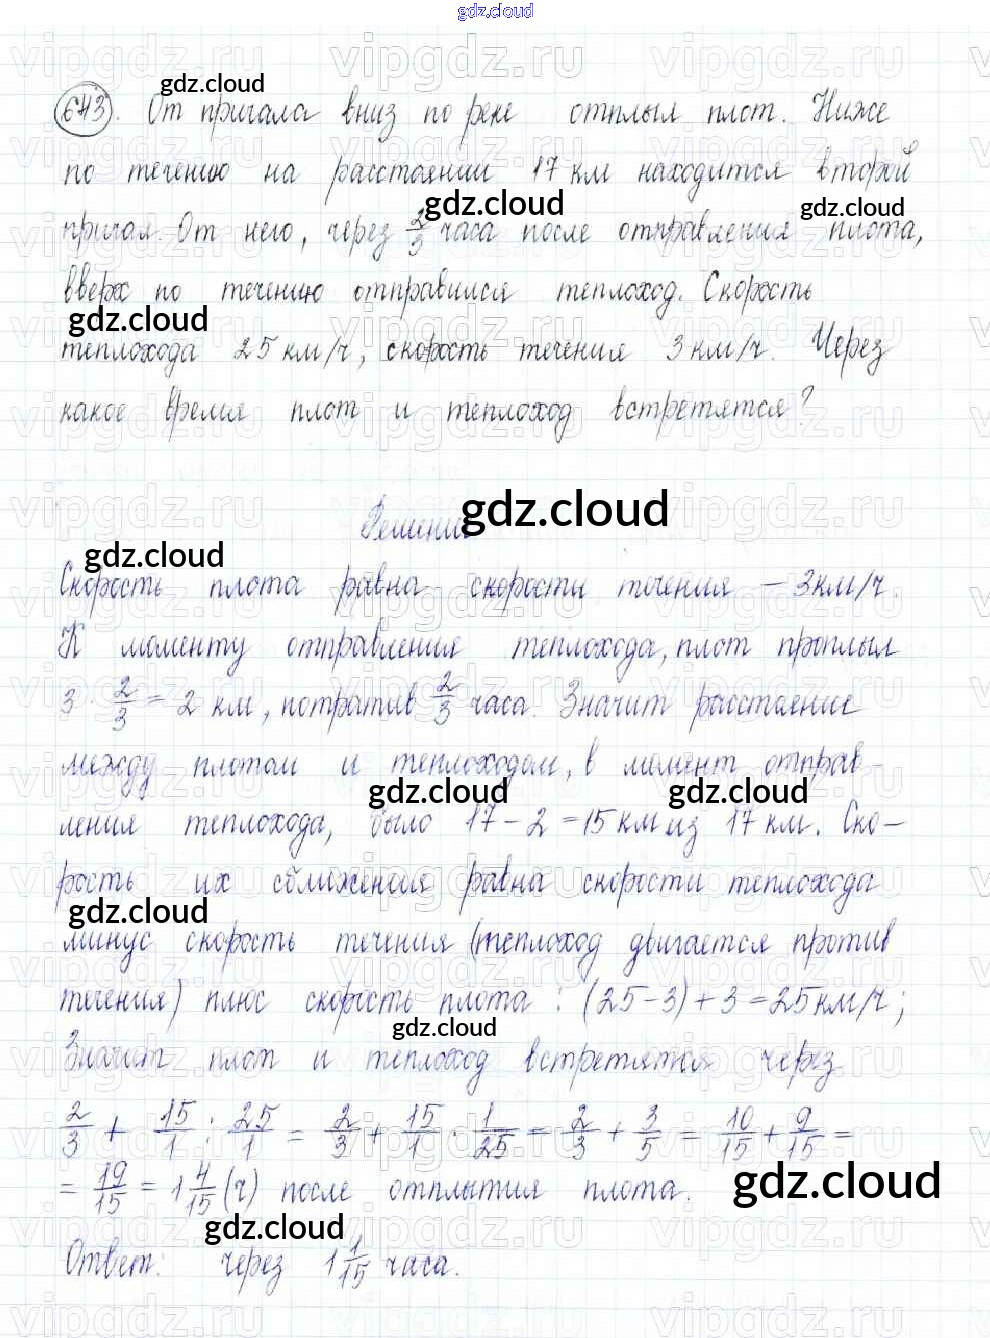 gdz.cloud
643. От причала вниз по реке отплыл плот. Ниже
по течению на расстоянии 17 км находится второй
причал. От него, через 2/3 часа после отправления плота,
вверх по течению отправился теплоход. Скорость
теплохода 25 км/ч, скорость течения 3 км/ч. Через
какое время плот и теплоход встретятся?
Решение
Скорость плота равна скорости течения – 3 км/ч.
К моменту отправления теплохода, плот проплыл
3 · 2/3 = 2 км, потратив 2/3 часа. Значит расстояние
между плотом и теплоходом, в момент отправ-
ления теплохода, было 17 – 2 = 15 км из 17 км. Ско-
рость их сближения равна скорости теплохода
минус скорость течения (теплоход двигается против
течения) плюс скорость плота: (25-3)+3=25 км/ч;
Значит плот и теплоход встретятся через
2/3 + 15/1 : 25/1 = 2/3 + 15/1 · 1/25 = 2/3 + 3/5 = 10/15 + 9/15 =
= 19/15 = 1 4/15 (ч) после отплытия плота.
Ответ: через 1 1/15 часа.
gdz.cloud
gdz.cloud
gdz.cloud
gdz.cloud
gdz.cloud
gdz.cloud
gdz.cloud
gdz.cloud
gdz.cloud
gdz.cloud
gdz.cloud
gdz.cloud
vipgdz.ru